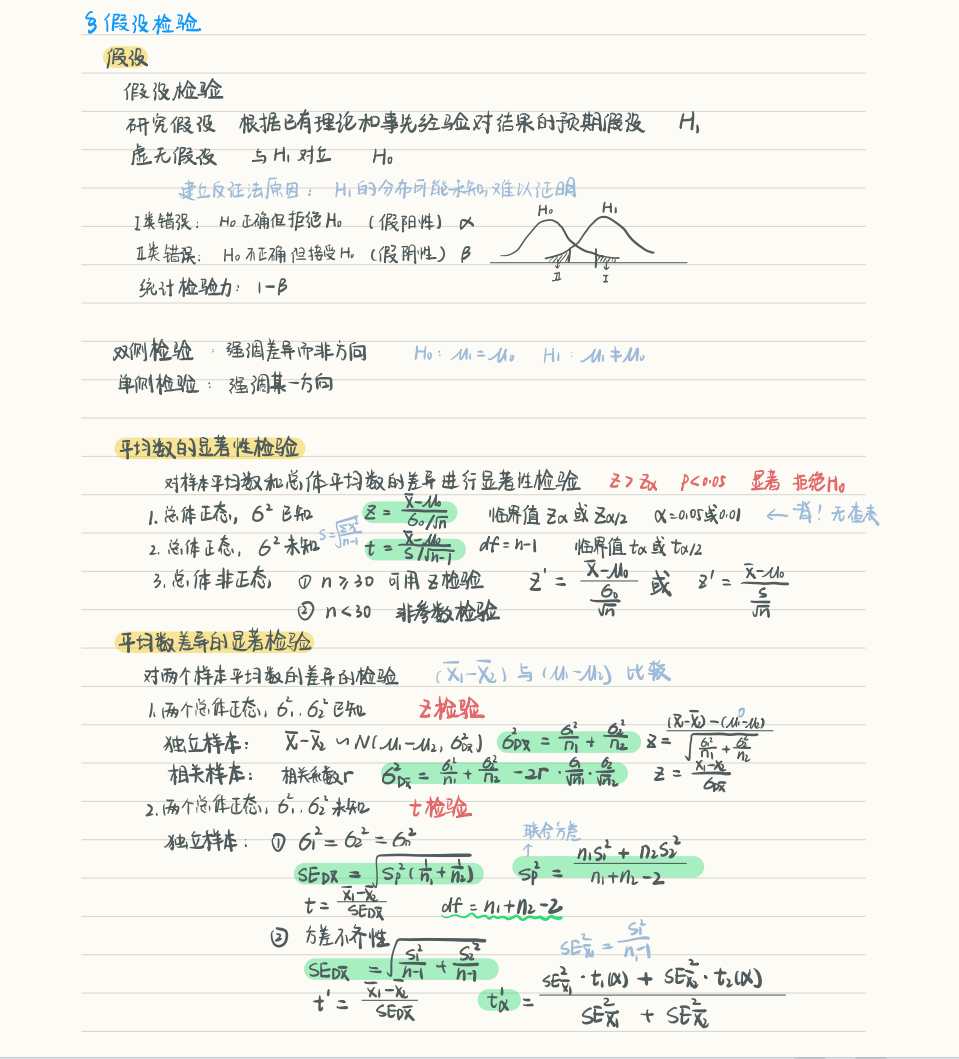 § 假设检验
假设
假设检验
研究假设 根据已有理论和事先经验对结果的预期假设 H₁
虚无假设 与H₁对立 H₀
建立反证法原因: H₁的分布可能未知,难以证明
I类错误: H₀正确但拒绝H₀ (假阳性) α
II类错误: H₀不正确但接受H₀ (假阴性) β
H₀ H₁
II I
统计检验力: 1-β
双侧检验: 强调差异而非方向 H₀: μ₁=μ₀ H₁: μ₁≠μ₀
单侧检验: 强调某一方向
平均数的显著性检验
对样本平均数和总体平均数的差异进行显著性检验 Z>Zα P<0.05 显著 拒绝H₀
1. 总体正态, σ²已知 Z = (X̄-μ₀)/(σ₀/√n) 临界值 Zα 或 Zα/2 α=0.05或0.01 ← 背! 无查表
2. 总体正态, σ²未知 S=√(Σx²/(n-1)) t = (X̄-μ₀)/(S/√(n-1)) df=n-1 临界值 tα 或 tα/2
3. 总体非正态, ① n≥30 可用Z检验 Z' = (X̄-μ₀)/(σ₀/√n) 或 Z' = (X̄-μ₀)/(S/√n)
② n<30 非参数检验
平均数差异的显著检验
对两个样本平均数的差异的检验 (X̄₁-X̄₂) 与 (μ₁-μ₂) 比较
1. 两个总体正态, σ₁². σ₂²已知 Z检验
独立样本: X̄₁-X̄₂ ∽ N(μ₁-μ₂, σ²Dx̄) σ²Dx̄ = σ₁²/n₁ + σ₂²/n₂ Z = ((X̄₁-X̄₂)-(μ₁-μ₂) 0)/√(σ₁²/n₁ + σ₂²/n₂)
相关样本: 相关系数r σ²Dx̄ = σ₁²/n₁ + σ₂²/n₂ - 2r · σ₁/√n₁ · σ₂/√n₂ Z = (X̄₁-X̄₂)/σDx̄
2. 两个总体正态, σ₁². σ₂²未知 t检验
联合方差
独立样本: ① σ₁² = σ₂² = σn²
SEDx̄ = √(Sp²(1/n₁ + 1/n₂)) Sp² = (n₁S₁² + n₂S₂²)/(n₁+n₂-2)
t = (X̄₁-X̄₂)/SEDx̄ df = n₁+n₂-2
② 方差不齐性 SE²x̄₁ = S₁²/(n₁-1)
SEDx̄ = √(S₁²/(n-1) + S₂²/(n-1))
t' = (X̄₁-X̄₂)/SEDx̄ t'α = (SE²x̄₁ · t₁(α) + SE²x̄₂ · t₂(α))/(SE²x̄₁ + SE²x̄₂)